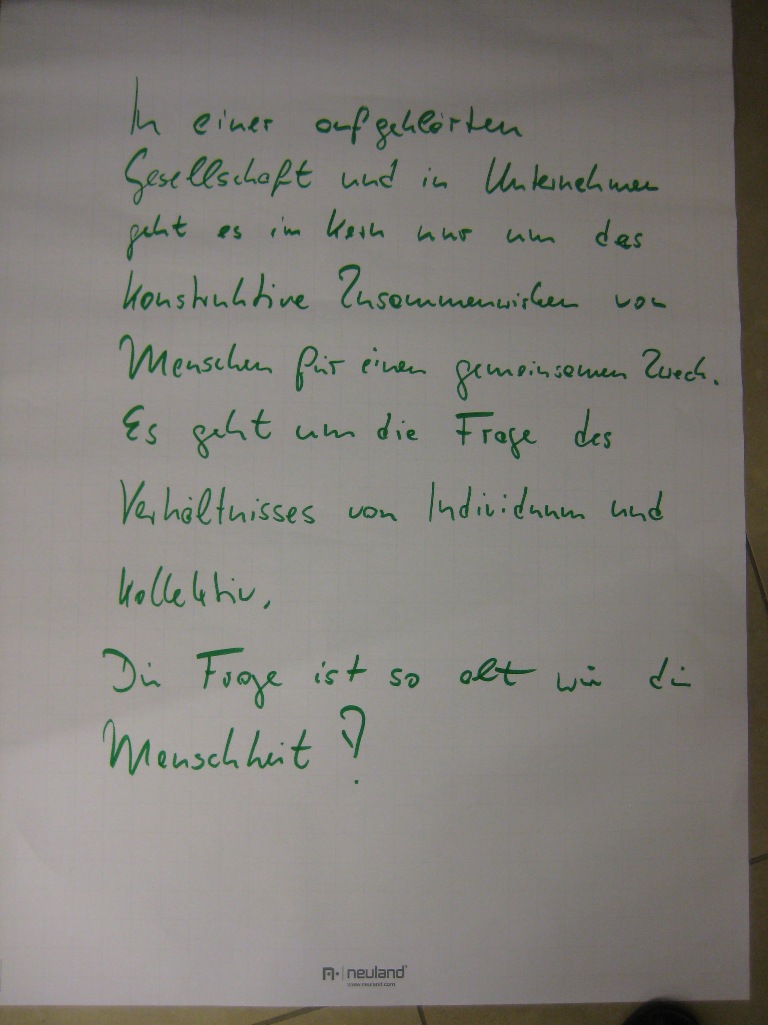 In einer aufgeklärten
Gesellschaft und in Unternehmen
geht es im Kern nur um das
konstruktive Zusammenwirken von
Menschen für einen gemeinsamen Zweck.
Es geht um die Frage des
Verhältnisses von Individuum und
Kollektiv.
Die Frage ist so alt wie die
Menschheit?
neuland
www.neuland.com